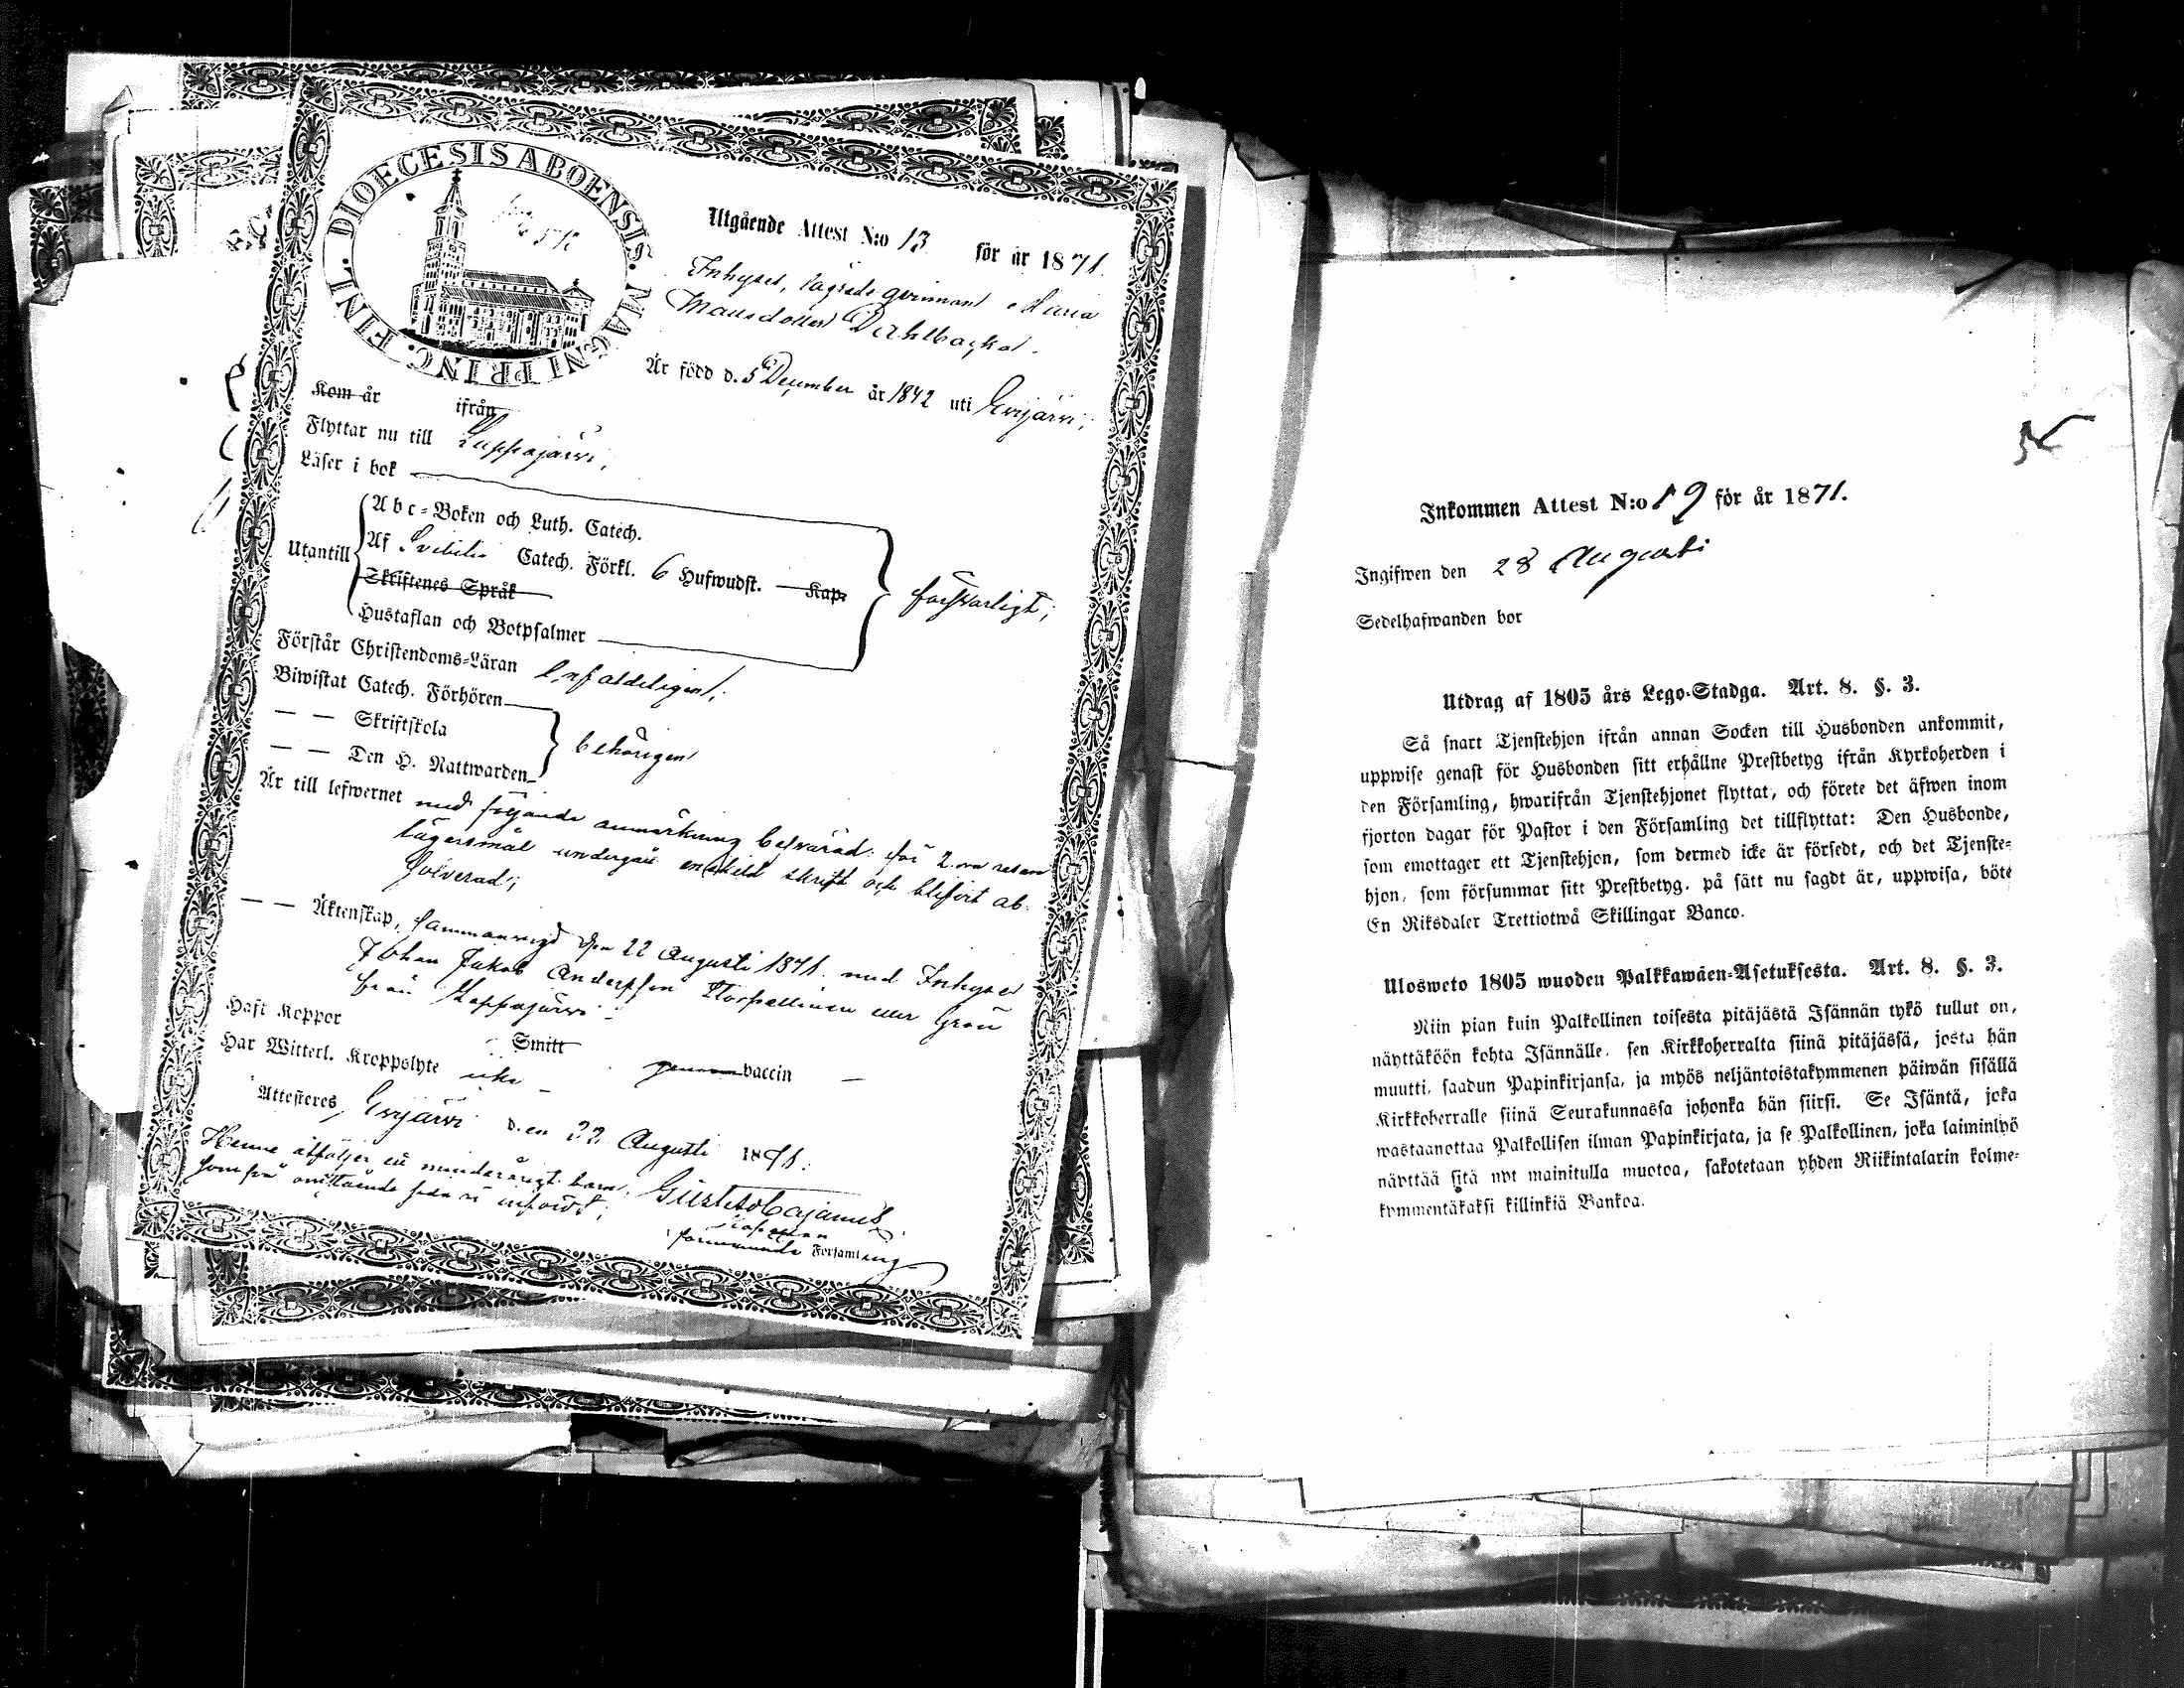 DIOECESIS ABOENSIS. MAGNI PRINC. FINL.
Utgående Attest N:o 13 för år 1871.
Inhyses, lägrade qvinnan Maria
Mansdotter Dahlbacka.
Är född d. 5 December år 1842 uti Evijärvi;
Kom år ifrån
Flyttar nu till Lappajärvi,
Läser i bok
Utantill
Abc-Boken och Luth. Catech.
Af Svebilii Catech. Förkl. 6 Hufwudst. Kap.
Skriftenes Språk
Hustaflan och Botpsalmer
försvarligt;
Förstår Christendoms-Läran enfaldeligen;
Biwistat Catech. Förhören
— — Skriftskola
— — Den H. Nattwarden
behörigen
Är till lefwernet med följande anmärkning befvärad: för 2.
lägersmål undergått enskild skrift och blifvit ab-
solverad;
— — Äktenskap, sammanvigd den 22 Augusti 1871 med Inhyses
Johan Jakob Andersson eller Grön
från Lappajärvi
Haft Koppor Smitt genom vaccin —
Har Witterl. Kroppslyte icke —
Attesteres, Evijärvi den 22 Augusti 1871.
Henne åtföljer ett minderårigt barn,
som på omstående sida är infördt;
Kapellan
Församling
Inkommen Attest N:o 19 för år 1871.
Ingifwen den 28 Augusti
Sedelhafwanden bor
Utdrag af 1805 års Lego-Stadga. Art. 8. §. 3.
Så snart Tjenstehjon ifrån annan Socken till Husbonden ankommit,
uppwise genast för Husbonden sitt erhållne Prestbetyg ifrån Kyrkoherden i
den Församling, hwarifrån Tjenstehjonet flyttat, och förete det äfwen inom
fjorton dagar för Pastor i den Församling det tillflyttat: Den Husbonde,
som emottager ett Tjenstehjon, som dermed icke är försedt, och det Tjenste-
hjon, som försummar sitt Prestbetyg, på sätt nu sagdt är, uppwisa, böte
En Riksdaler Trettiotwå Skillingar Banco.
Ulosweto 1805 wuoden Palkkawäen-Asetuksesta. Art. 8. §. 3.
Niin pian kuin Palkollinen toisesta pitäjästä Isännän tykö tullut on,
näyttäköön kohta Isännälle, sen Kirkkoherralta siinä pitäjässä, josta hän
muutti, saadun Papinkirjansa, ja myös neljäntoistakymmenen päiwän sisällä
Kirkkoherralle siinä Seurakunnassa johonka hän siirsi. Se Isäntä, joka
wastaanottaa Palkollisen ilman Papinkirjata, ja se Palkollinen, joka laiminlyö
näyttää sitä nyt mainitulla muotoa, sakotetaan yhden Riikintalarin kolme-
kymmentäkaksi killinkiä Bankoa.